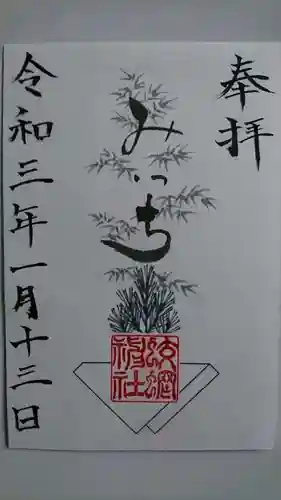 奉拝
みつち
蛟蝄
神社
令和三年一月十三日